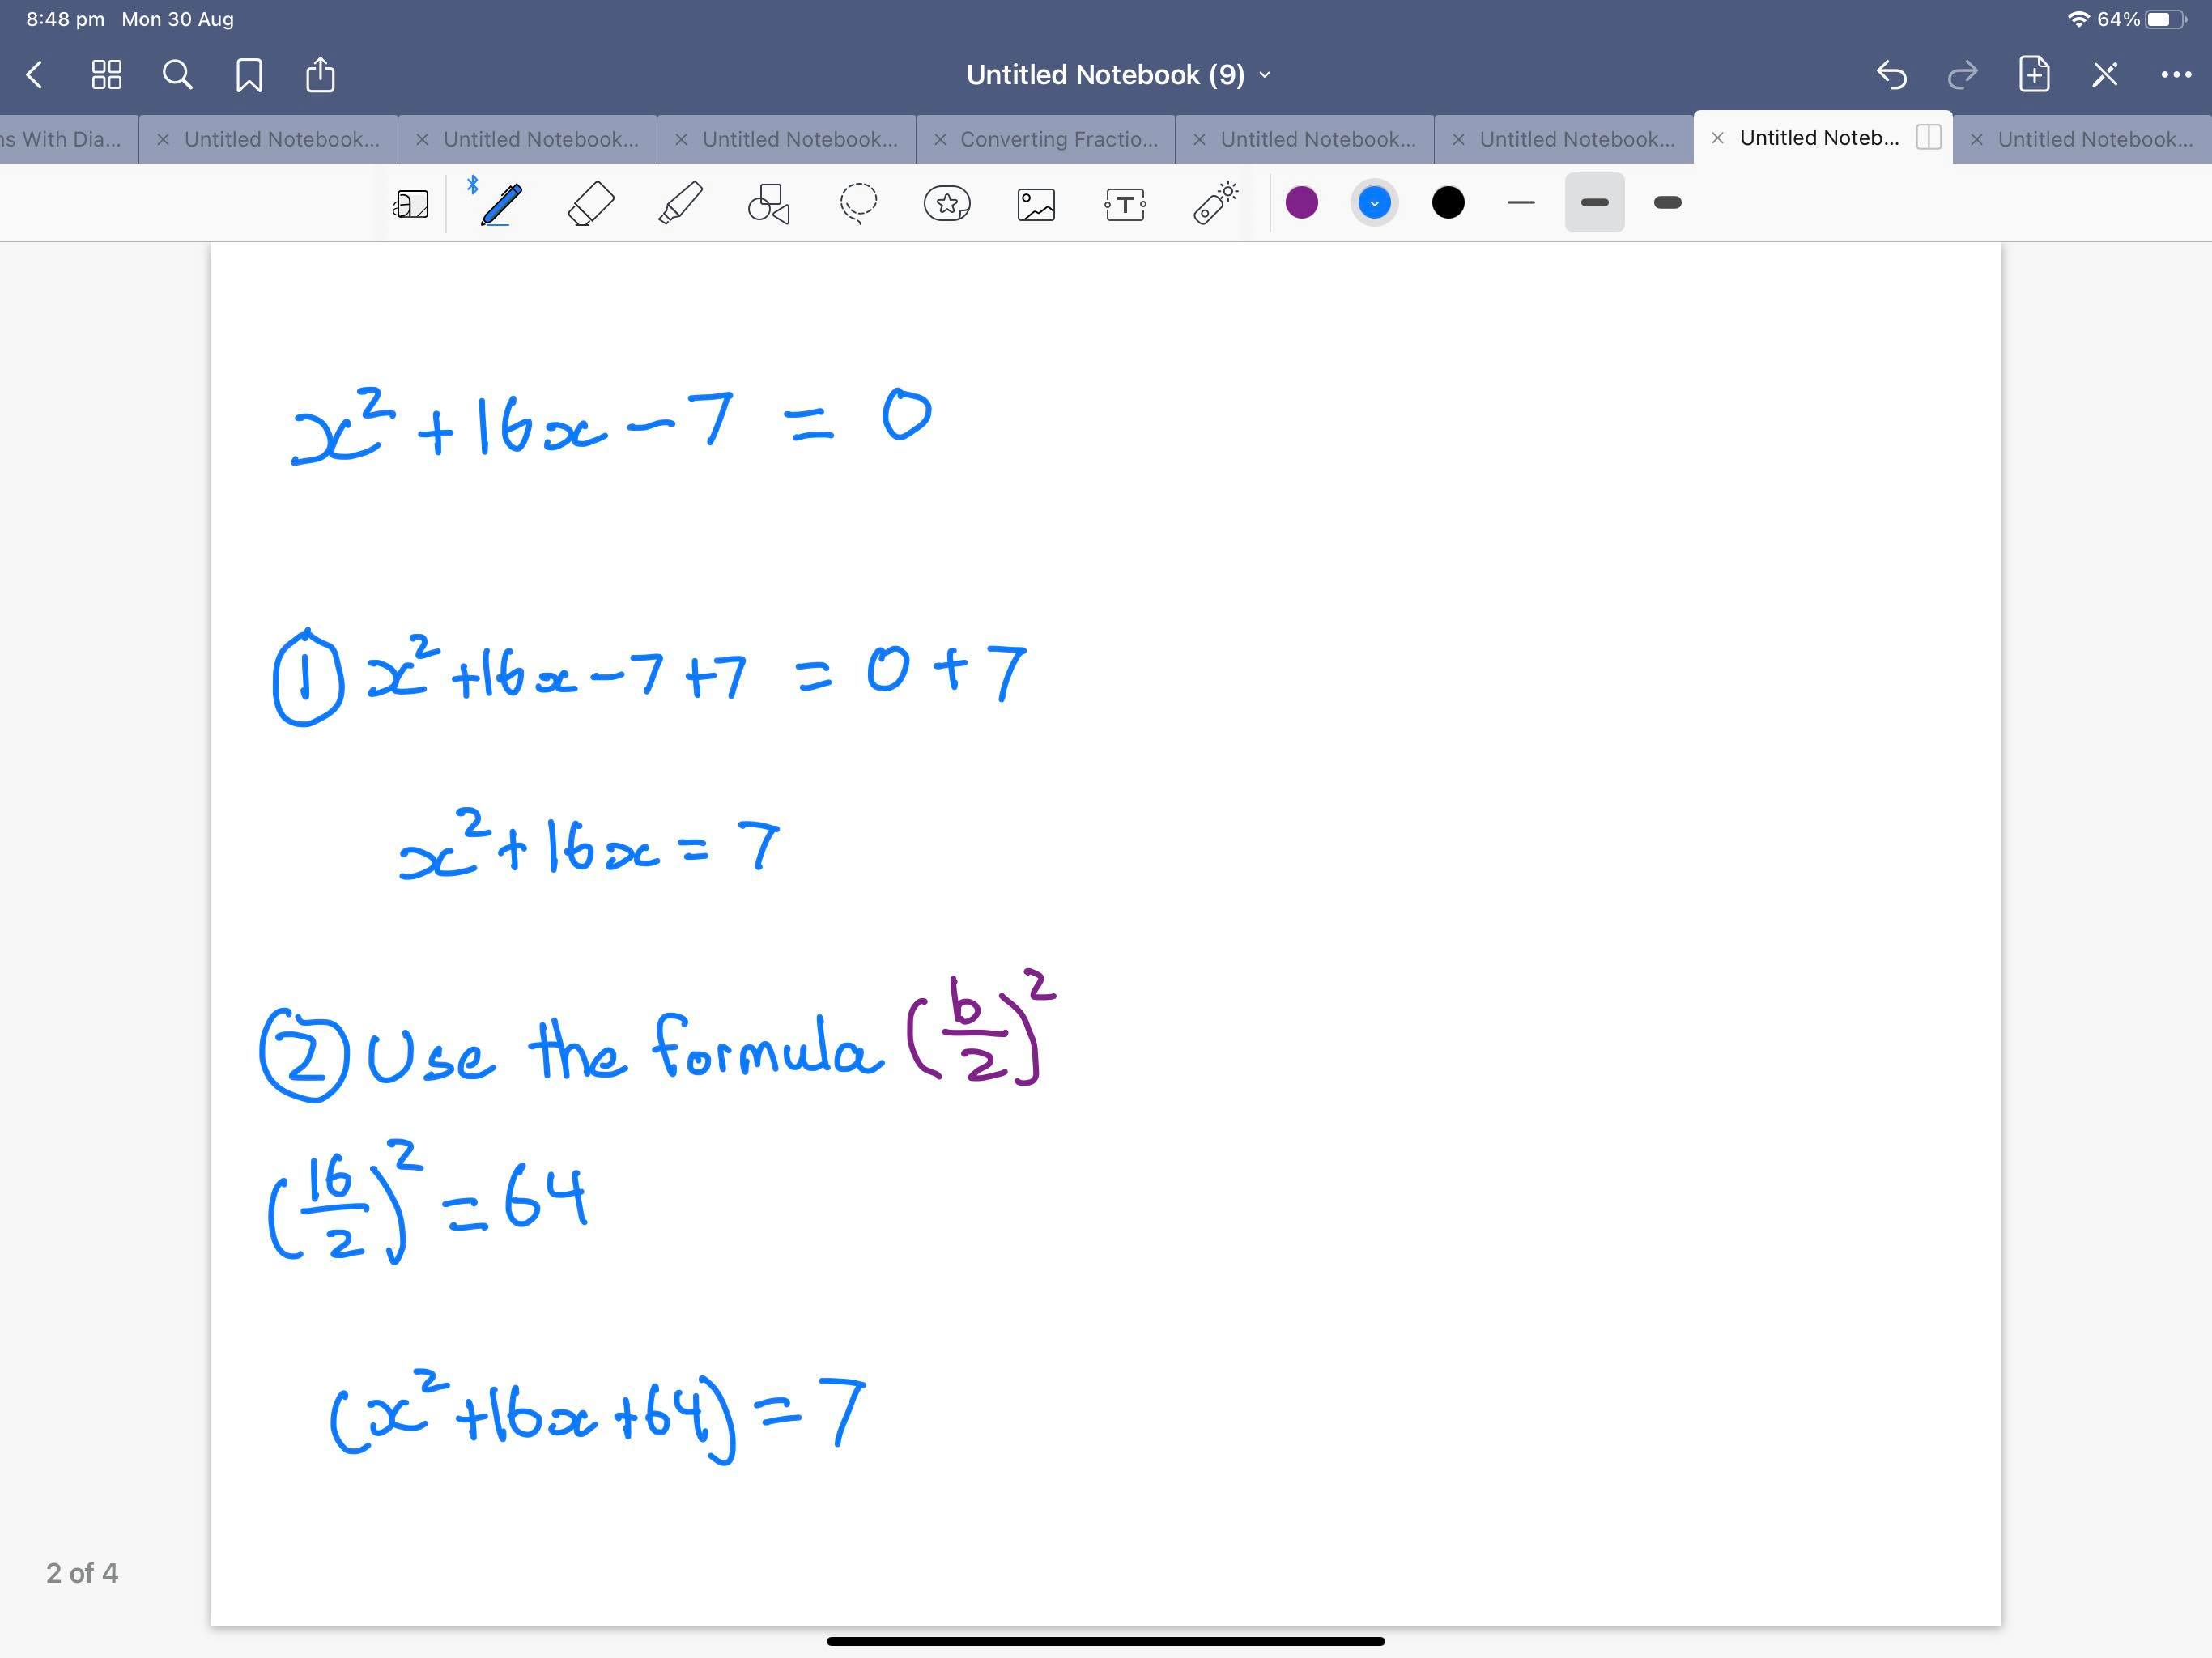 8:48 pm Mon 30 Aug 64%
Untitled Notebook (9)
ns With Dia... Untitled Notebook... Untitled Notebook... Untitled Notebook... Converting Fractio... Untitled Notebook... Untitled Notebook... Untitled Noteb... Untitled Notebook...
x² + 16x - 7 = 0
① x² + 16x - 7 + 7 = 0 + 7
x² + 16x = 7
② Use the formula (b/2)²
(16/2)² = 64
(x² + 16x + 64) = 7
2 of 4